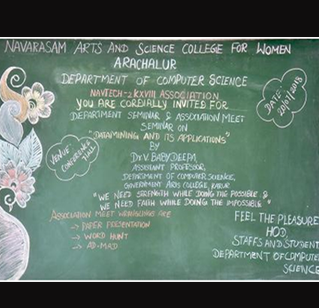 NAVARASAM ARTS AND SCIENCE COLLEGE FOR WOMEN
ARACHALUR
DEPARTMENT OF COMPUTER SCIENCE
ASSOCIATION
YOU ARE CORDIALLY INVITED FOR
DEPARTMENT SEMINAR & ASSOCIATION MEET
SEMINAR ON
"DATAMINING AND ITS APPLICATIONS"
BY
DR.V.BABY DEEPA
ASSISTANT PROFESSOR,
DEPARTMENT OF COMPUTER SCIENCE,
GOVERNMENT ARTS COLLEGE, KARUR
"WE NEED STRENGTH WHILE DOING THE POSSIBLE &
WE NEED FAITH WHILE DOING THE IMPOSSIBLE"
ASSOCIATION MEET ARE
→ PAPER PRESENTATION
→ WORD HUNT
→ AD-MAD
DATE:
VENUE:
CONFERENCE
HALL
FEEL THE PLEASURE
HOD,
STAFFS AND STUDENT
DEPARTMENT OF COMPUTE
SCIENCE